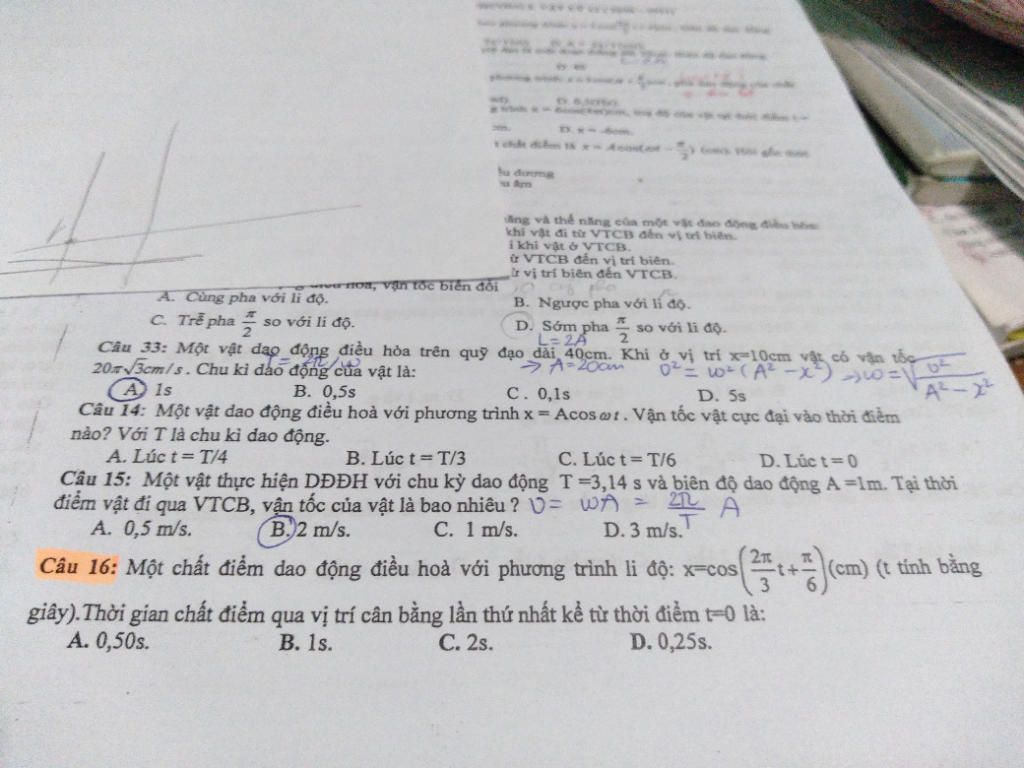 L=2A
D. x = -6cm.
t chất điểm là x = Acos(ωt − π/2) (cm).
ều dương
ều âm
ăng và thế năng của một vật dao động điều hòa:
khi vật đi từ VTCB đến vị trí biên.
i khi vật ở VTCB.
ừ VTCB đến vị trí biên.
ừ vị trí biên đến VTCB.
điều hòa, vận tốc biến đổi
A. Cùng pha với li độ. B. Ngược pha với li độ.
C. Trễ pha π/2 so với li độ. D. Sớm pha π/2 so với li độ.
L=2A
Câu 33: Một vật dao động điều hòa trên quỹ đạo dài 40cm. Khi ở vị trí x=10cm vật có vận tốc
T = 2π/ω → A=20cm v² = ω² (A² − x²) → ω = √(v²/(A² − x²))
20π√3cm/s. Chu kì dao động của vật là:
A. 1s B. 0,5s C. 0,1s D. 5s
Câu 14: Một vật dao động điều hoà với phương trình x = Acosωt. Vận tốc vật cực đại vào thời điểm
nào? Với T là chu kì dao động.
A. Lúc t = T/4 B. Lúc t = T/3 C. Lúc t = T/6 D. Lúc t = 0
Câu 15: Một vật thực hiện DĐĐH với chu kỳ dao động T =3,14 s và biên độ dao động A =1m. Tại thời
điểm vật đi qua VTCB, vận tốc của vật là bao nhiêu ? v = ωA = 2π/T A
A. 0,5 m/s. B. 2 m/s. C. 1 m/s. D. 3 m/s.
Câu 16: Một chất điểm dao động điều hoà với phương trình li độ: x=cos(2π/3 t+π/6)(cm) (t tính bằng
giây).Thời gian chất điểm qua vị trí cân bằng lần thứ nhất kể từ thời điểm t=0 là:
A. 0,50s. B. 1s. C. 2s. D. 0,25s.